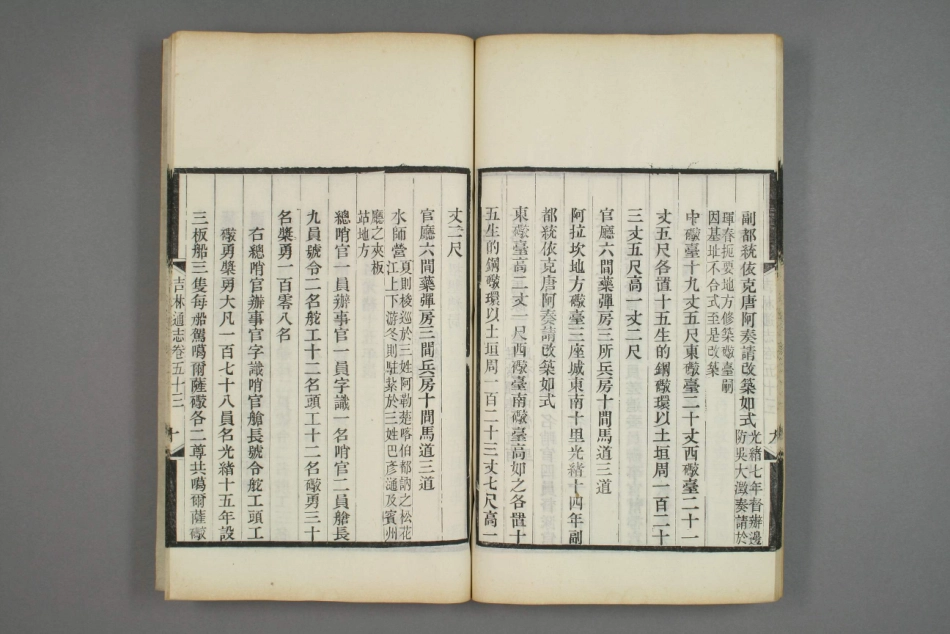 副都統依克唐阿奏請改築如式光緒七年督辦邊
防吳大澂奏請於
琿春扼要地方修築礮臺嗣
因基址不合式至是改築
中礮臺十九丈五尺東礮臺二十丈西礮臺二十一
丈五尺各置十五生的鋼礮環以土垣周一百二十
三丈五尺高一丈二尺
官廳六間藥彈房三所兵房十間馬道三道
阿拉坎地方礮臺三座城東南十里光緒十四年副
都統依克唐阿奏請改築如式
東礮臺高二丈一尺西礮臺南礮臺高如之各置十
五生的鋼礮環以土垣周一百二十三丈七尺高一
丈二尺
官廳六間藥彈房三間兵房十間馬道三道
水師營夏則梭巡於三姓阿勒楚喀伯都訥之松花
江上下游冬則駐紮於三姓巴彥通及賓州
廳之夾板
站地方
總哨官一員辦事官一員字識一名哨官二員艙長
九員號令二名舵工十二名頭工十二名礮勇三十
名槳勇一百零八名
右總哨官辦事官字識哨官艙長號令舵工頭工
礮勇槳勇大凡一百七十八員名光緒十五年設
三板船三隻每船駕噶爾薩礮各二尊共噶爾薩礮
吉林通志卷五十三
十